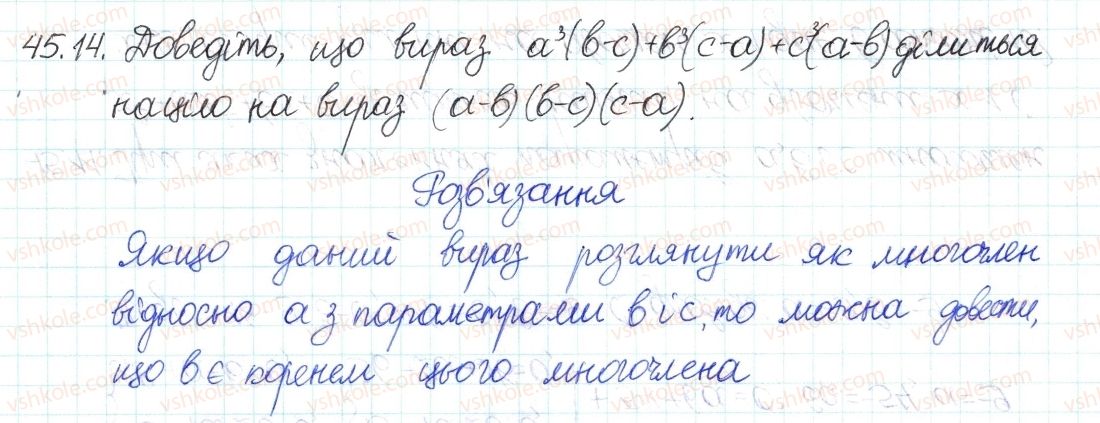 45.14. Доведіть, що вираз a³(b-c)+b³(c-a)+c³(a-b) ділиться
націло на вираз (a-b)(b-c)(c-a).
Розв'язання
Якщо даний вираз розглянути як многочлен
відносно a з параметрами b і c, то можна довести,
що b є коренем цього многочлена